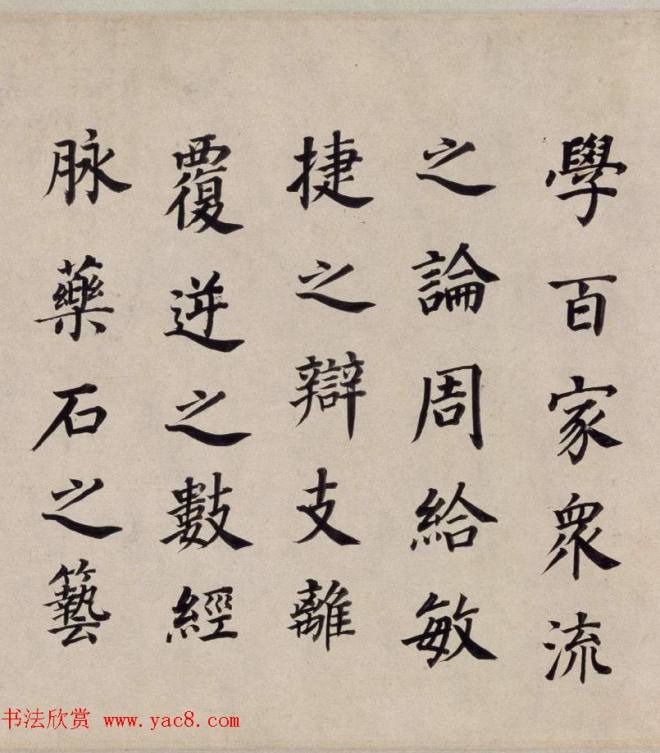 學百家眾流
之論周給敏
捷之辯支離
覆逆之數經
脉藥石之藝
书法欣赏 www.yac8.com